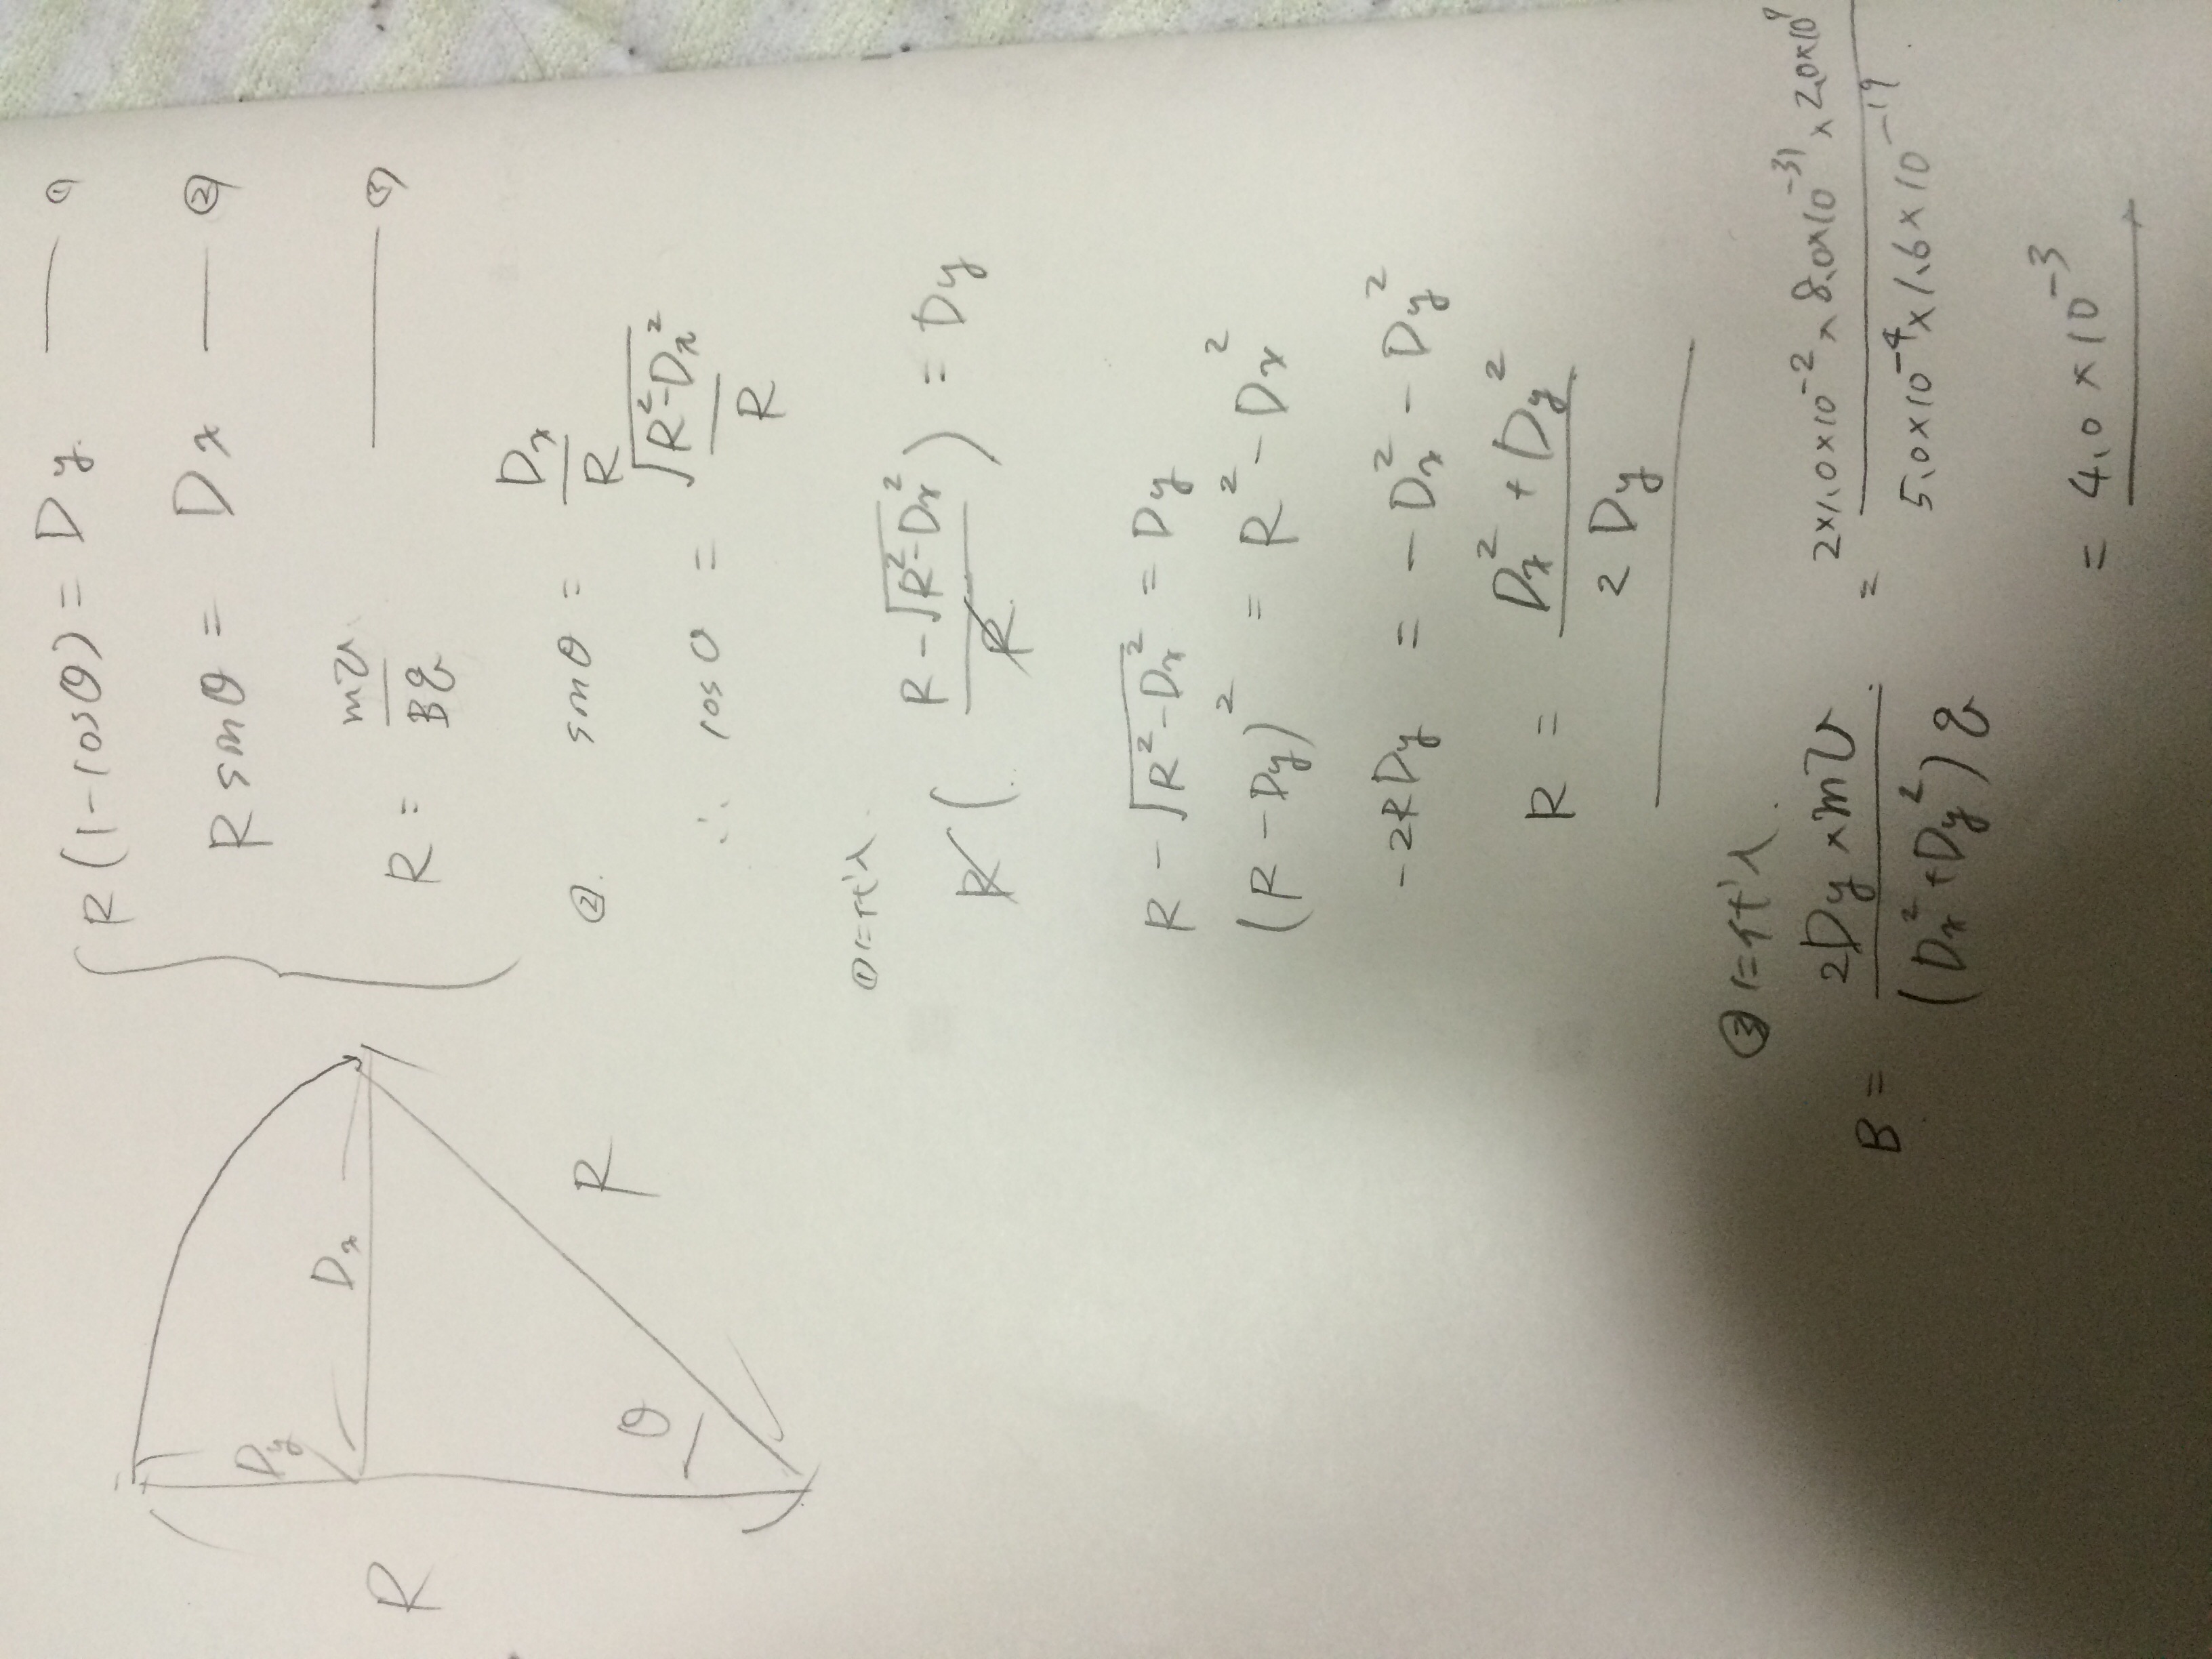 R(1-cosθ) = Dy ― ①
R sinθ = Dx ― ②
R = mv/Bq ― ③
② sinθ = Dx/R
∴ cosθ = √(R²-Dx²)/R
①に代入
R( (R-√(R²-Dx²))/R ) = Dy
R-√(R²-Dx²) = Dy
(R-Dy)² = R²-Dx²
-2RDy = -Dx²-Dy²
R = (Dx²+Dy²)/2Dy
③に代入
B = 2Dy×mv/(Dx²+Dy²)q = 2×1.0×10⁻²×8.0×10⁻³¹×2.0×10⁹/5.0×10⁻⁴×1.6×10⁻¹⁹
= 4.0×10⁻³
Dy
Dx
θ
R
R